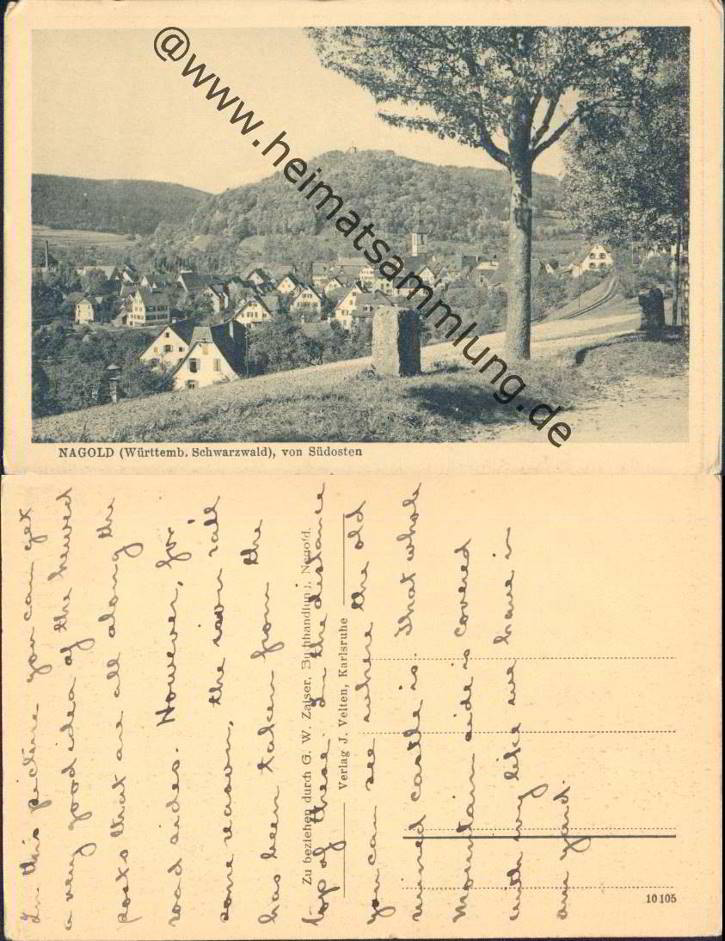 @www.heimatsammlung.de
NAGOLD (Württemb. Schwarzwald), von Südosten
In this picture you can get
a very good idea of the hewed
posts that are all along the
road sides. However, for
some reason, the iron rail
has been taken from the
top of these. In the distance
you can see where the old
ruined castle is. That whole
mountain side is covered
with ivy like we have in
our yard.
Zu beziehen durch G. W. Zaiser, Buchhandlung, Nagold.
Verlag J. Velten, Karlsruhe
10105